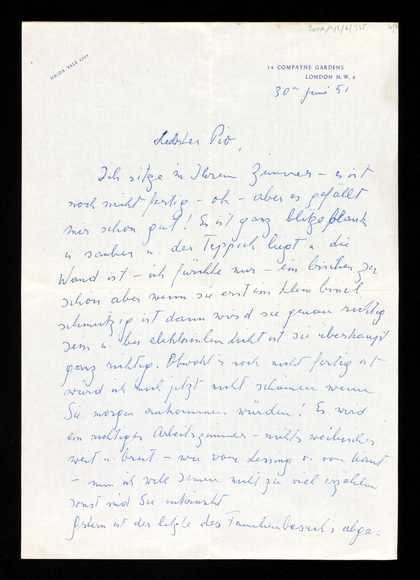 MAIDA VALE
14 COMPAYNE GARDENS
LONDON N.W. 6
30ten Juni 51
Liebster Pio,
Ich sitze in Ihrem Zimmer – es ist
noch nicht fertig – oh – aber es gefällt
mir schon gut! Es ist ganz blitzeblank
u sauber u. der Teppich liegt u die
Wand ist – ich fürchte nur – ein bischen zu
schön aber wenn sie erst ein klein bissel
schmutzig ist dann wird sie genau richtig
sein u. bei elektrischen Licht ist sie überhaupt
ganz richtig. Obwohl's noch nicht fertig ist
würd ich mich jetzt nicht schämen wenn
Sie morgen ankommen würden! Es wird
ein richtiges Arbeitszimmer – nichts weibisches
weit u. breit – wie von Lessing o. von Kant
– nun ich will Ihnen nicht zu viel erzählen
sonst sind Sie enttäuscht
Gestern ist der letzte des Familienbesuchs abge-